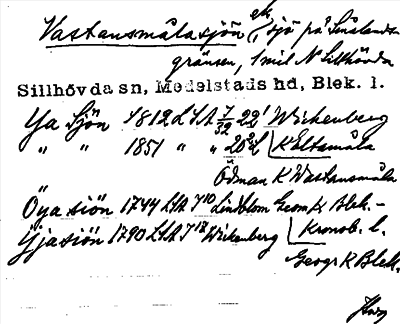 Vastansmålasjön, sjö på Smålands-
gränsen, 1 mil N Sillhövda
Sillhövda sn, Medelstads hd, Blek. l.
Ya Sjön 1812 LSA 7/32 22¹ Wickenberg
" " 1851 " " 20 K Eltsmåla
Ödman K Wastansmåla
Öya siön 1744 LSA 7¹⁰ Lindblom Geom K Blek.-
Yjasiön 1790 LSA 7¹² Wickenberg Kronob. l.
Geogr K Blek.